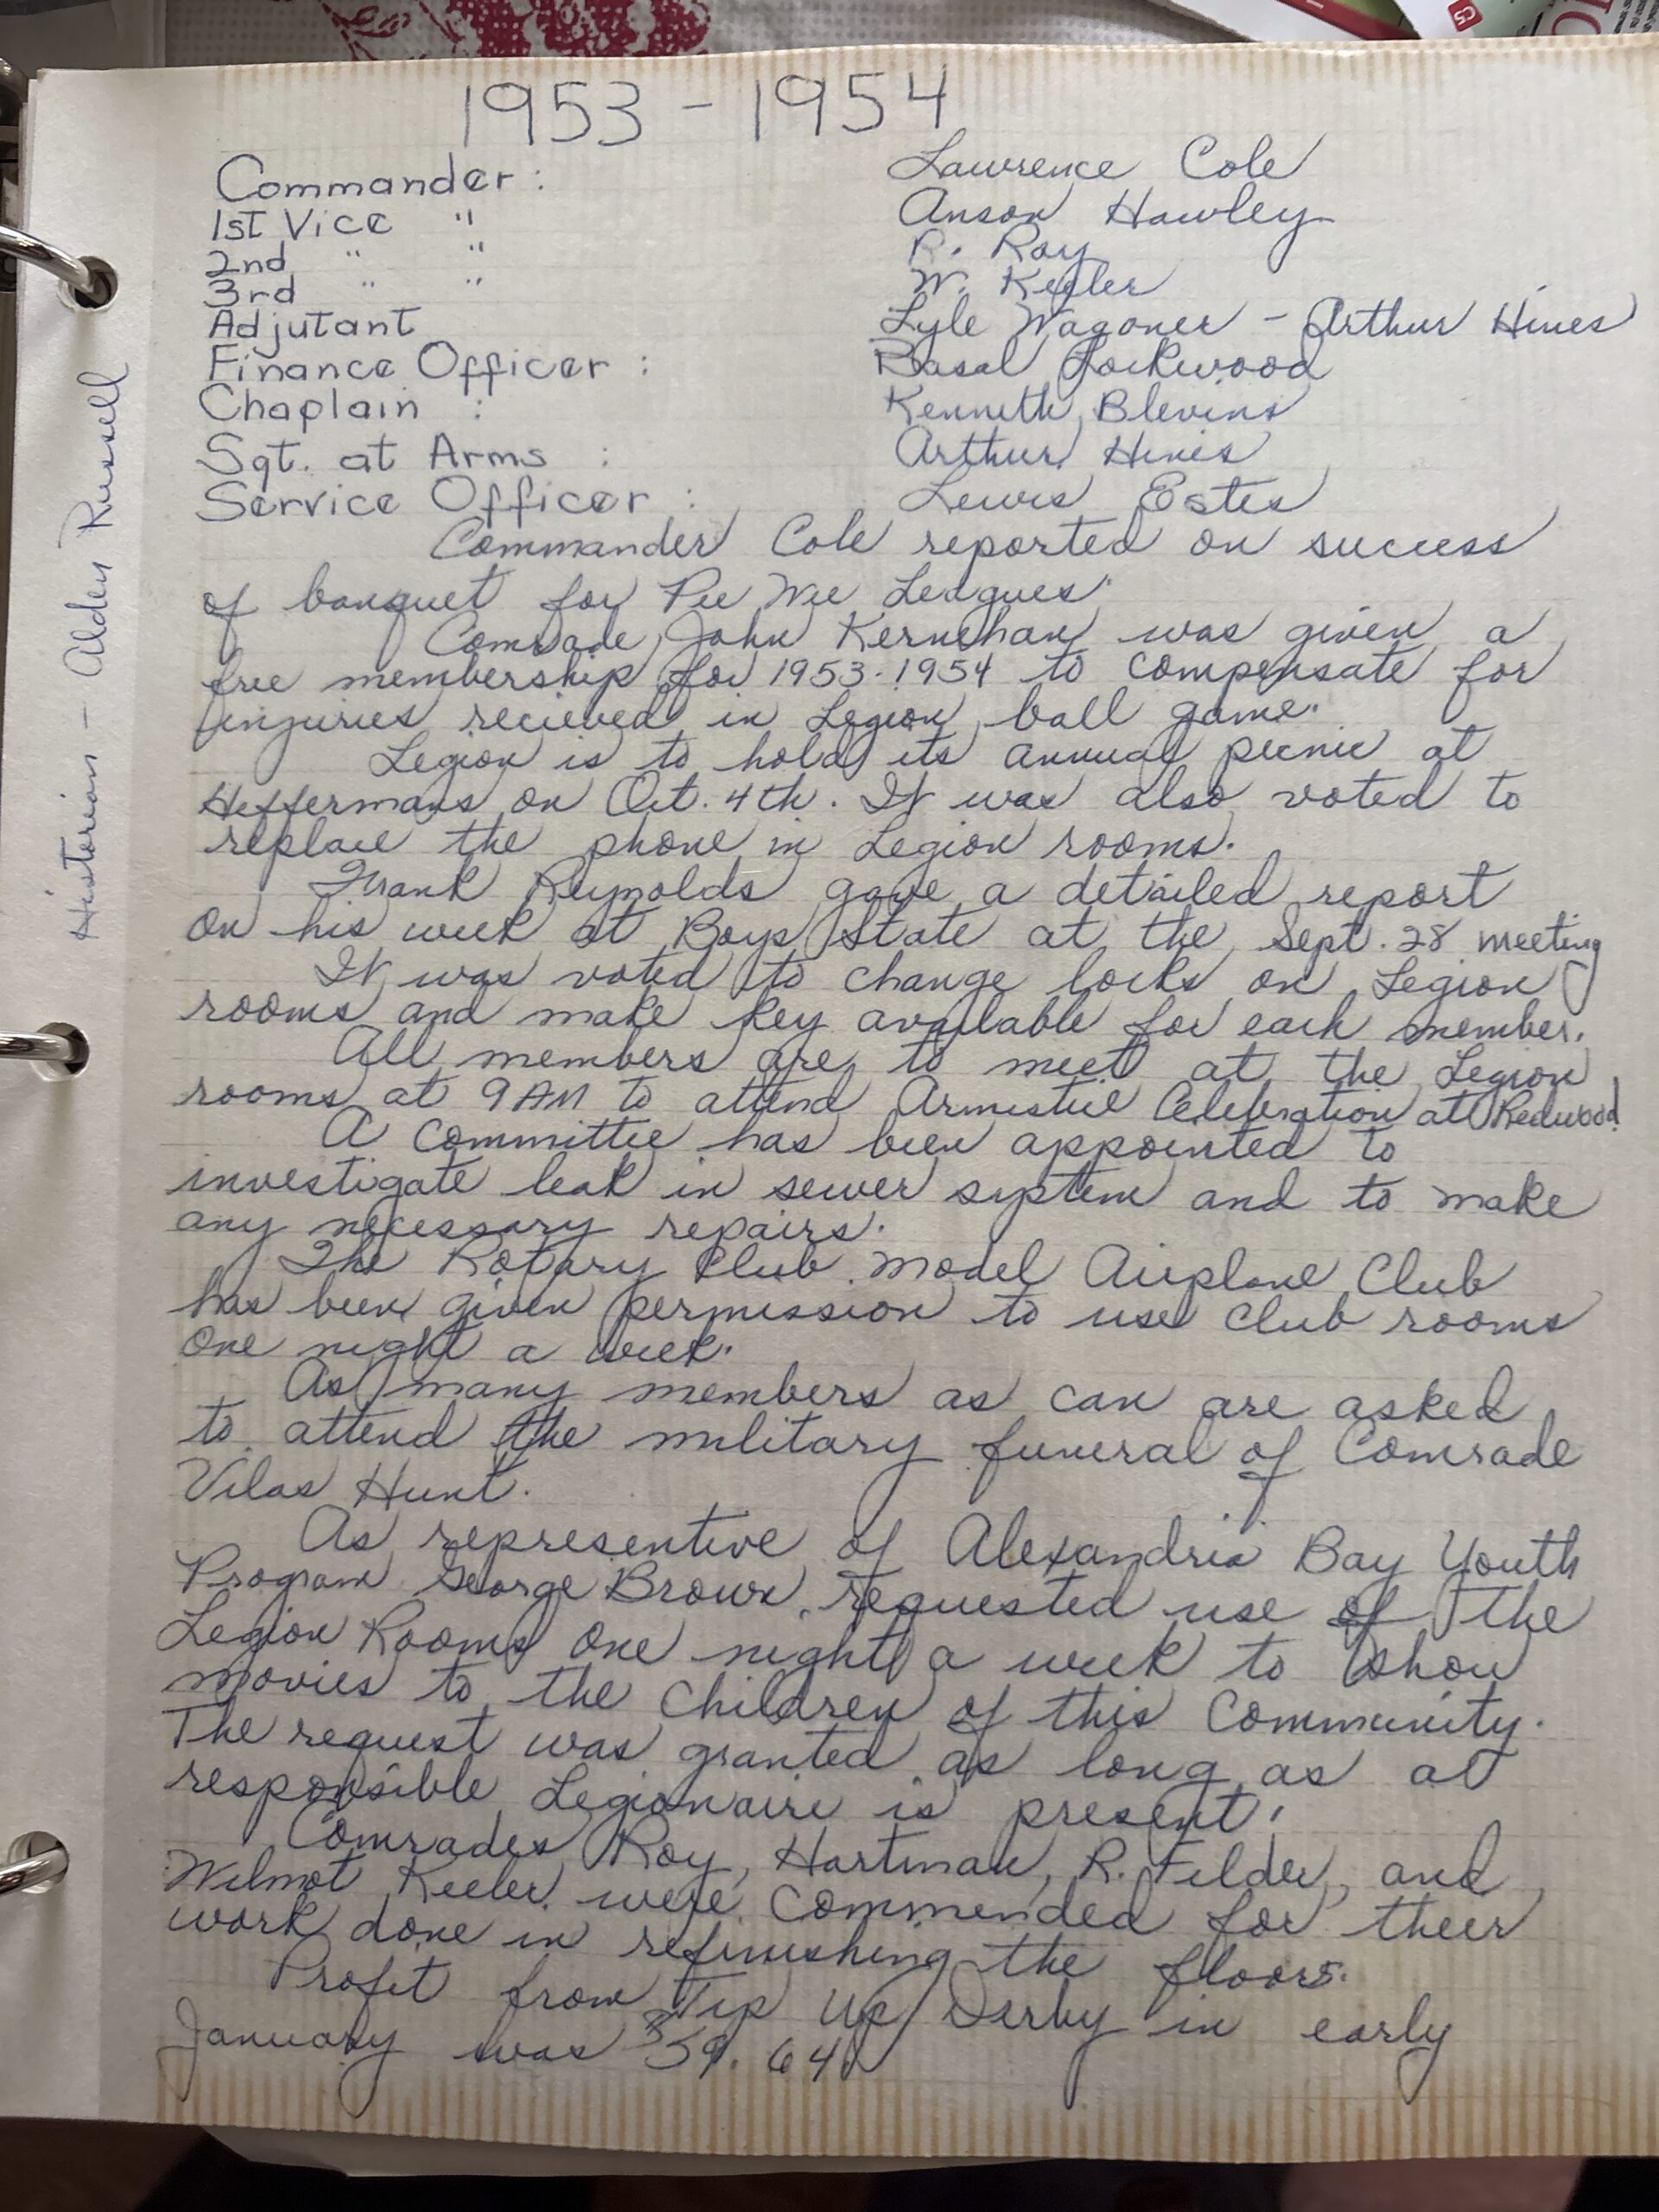 1953 - 1954
Commander : Lawrence Cole
1st Vice " Anson Hawley
2nd " " R. Roy
3rd " " W. Keeler
Adjutant Lyle Wagoner - Arthur Hines
Finance Officer : Basal Lockwood
Chaplain : Kenneth Blevins
Sgt. at Arms : Arthur Hines
Service Officer : Lewis Estes
Commander Cole reported on success
of banquet for Pee Wee Leagues.
Comrade John Kernehan was given a
free membership for 1953-1954 to compensate for
injuries recieved in Legion ball game.
Legion is to hold its annual picnic at
Heffermans on Oct. 4th. It was also voted to
replace the phone in Legion rooms.
Frank Reynolds gave a detailed report
on his week at Boys State at the Sept. 28 meeting
It was voted to change locks on Legion
rooms and make key available for each member.
All members are to meet at the Legion
rooms at 9 AM to attend Armistice Celebration at Redwood
A committee has been appointed to
investigate leak in sewer system and to make
any necessary repairs.
The Rotary Club Model Airplane Club
has been given permission to use club rooms
one night a week.
As many members as can are asked
to attend the military funeral of Comrade
Vilas Hunt.
As representive of Alexandria Bay Youth
Program George Brown, requested use of the
Legion Rooms one night a week to show
movies to the children of this community.
The request was granted as long as at
responsible Legionaire is present.
Comrades Roy, Hartman, R. Felder, and
Wilmot Keeler were commended for their
work done in refinishing the floors.
Profit from Tip Up Derby in early
January was $59.64
Historian - Alden Russell
C5